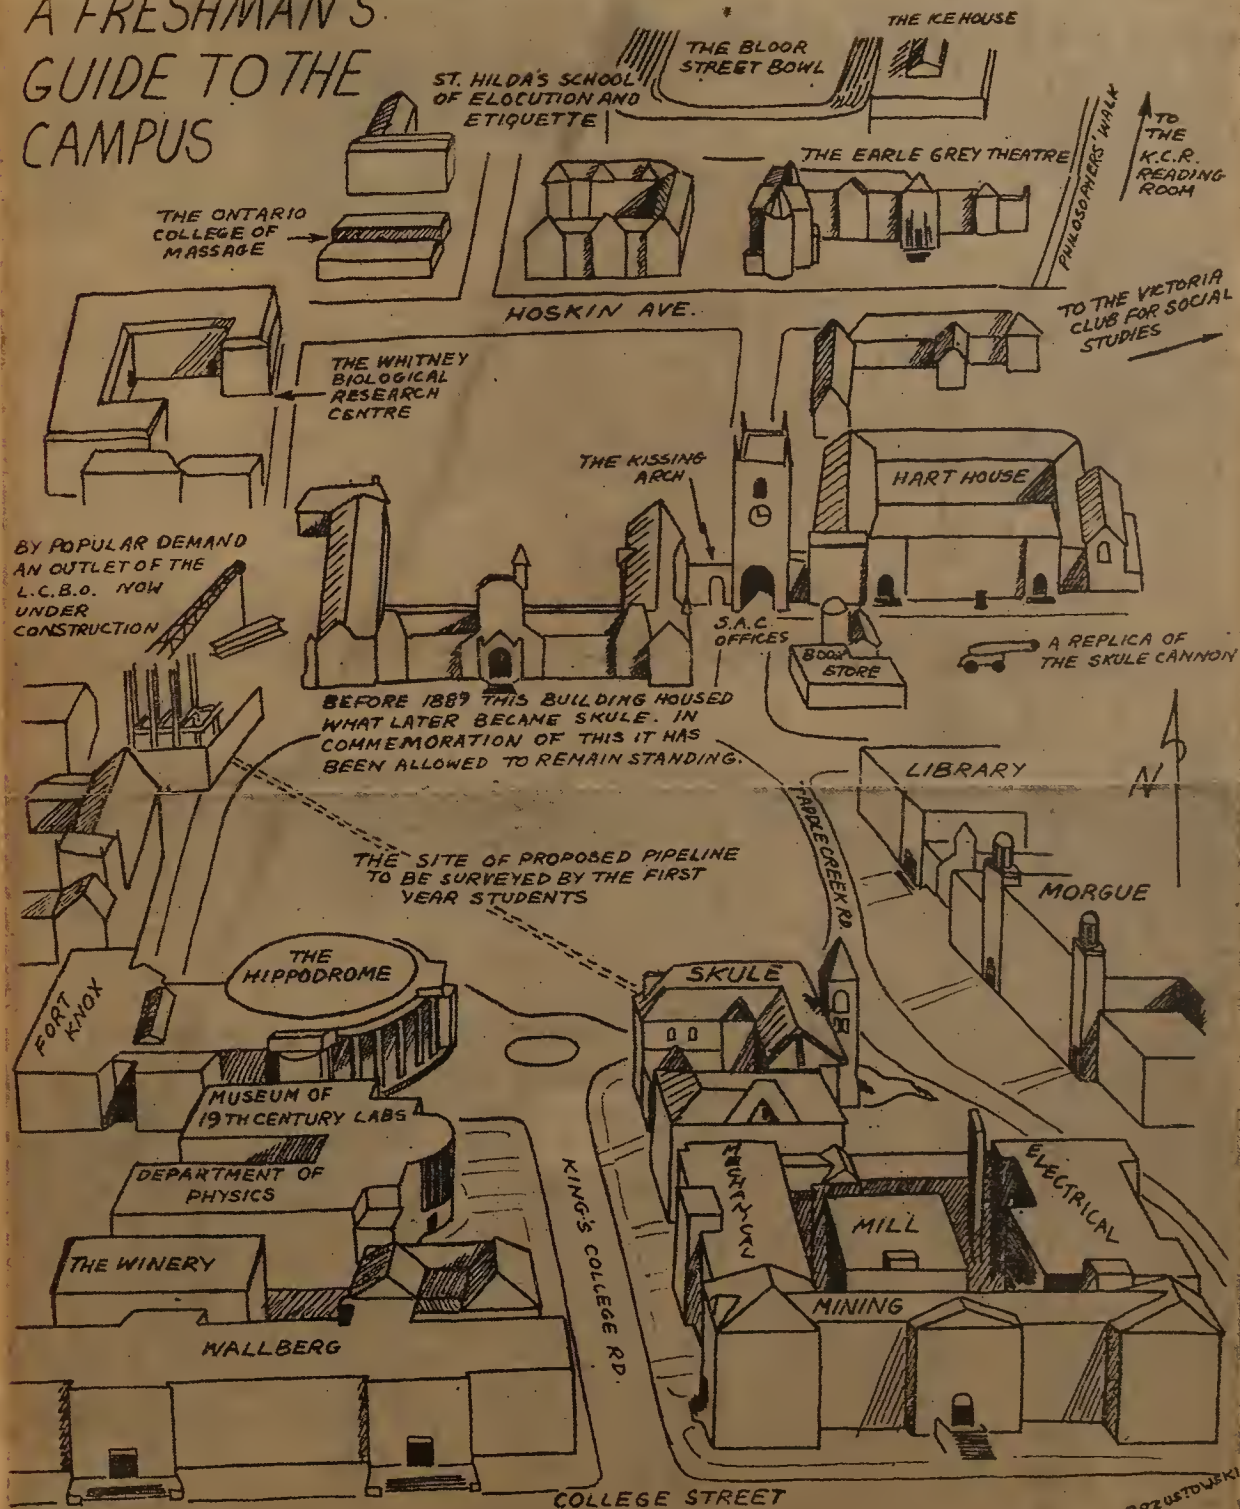 A FRESHMAN'S
GUIDE TO THE
CAMPUS
THE ICE HOUSE
THE BLOOR
STREET BOWL
ST. HILDA'S SCHOOL
OF ELOCUTION AND
ETIQUETTE
THE EARLE GREY THEATRE
PHILOSOPHERS' WALK
TO
THE
K.C.R.
READING
ROOM
THE ONTARIO
COLLEGE OF
MASSAGE
HOSKIN AVE.
TO THE VICTORIA
CLUB FOR SOCIAL
STUDIES
THE WHITNEY
BIOLOGICAL
RESEARCH
CENTRE
THE KISSING
ARCH
HART HOUSE
BY POPULAR DEMAND
AN OUTLET OF THE
L.C.B.O. NOW
UNDER
CONSTRUCTION
S.A.C.
OFFICES
BOOK
STORE
A REPLICA OF
THE SKULE CANNON
BEFORE 1889 THIS BUILDING HOUSED
WHAT LATER BECAME SKULE. IN
COMMEMORATION OF THIS IT HAS
BEEN ALLOWED TO REMAIN STANDING.
N
LIBRARY
TADDLE CREEK RD.
THE SITE OF PROPOSED PIPELINE
TO BE SURVEYED BY THE FIRST
YEAR STUDENTS
MORGUE
THE
HIPPODROME
SKULE
FORT
KNOX
MUSEUM OF
19TH CENTURY LABS
DEPARTMENT OF
PHYSICS
KING'S COLLEGE RD.
ELECTRICAL
MILL
THE WINERY
MINING
WALLBERG
COLLEGE STREET